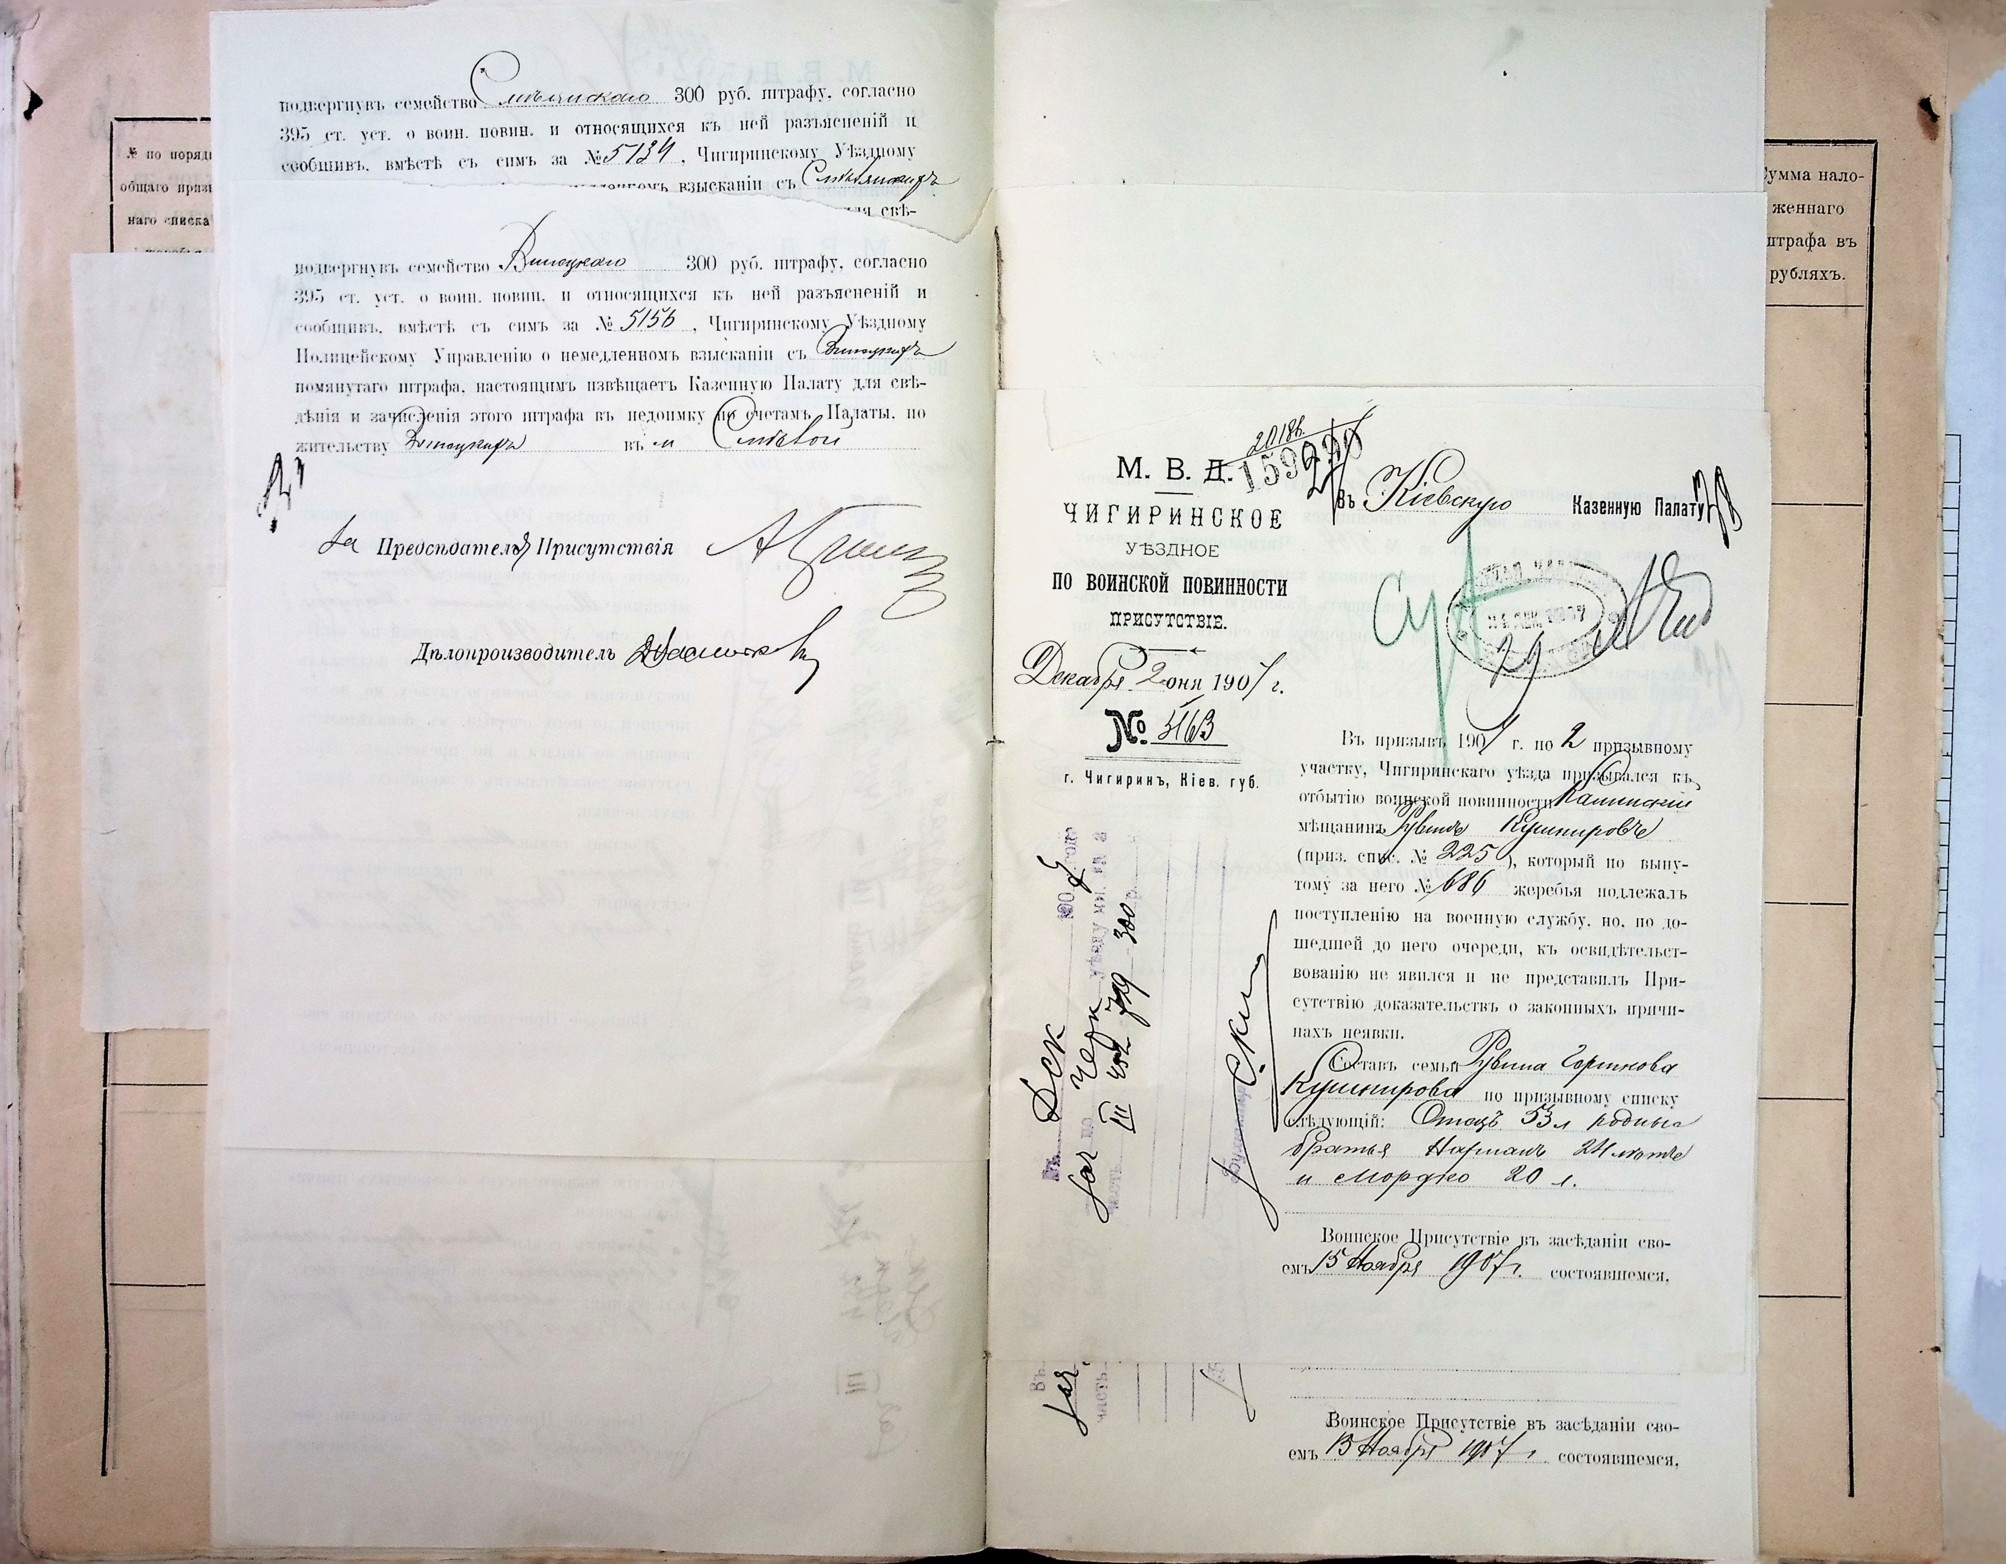 № по поряд
общаго призы
наго списка
подвергнувъ семейство Смѣлянскаго 300 руб. штрафу, согласно
395 ст. уст. о воин. повин. и относящихся къ ней разъясненій и
сообщивъ, вмѣстѣ съ симъ за № 5134, Чигиринскому Уѣздному
взысканіи съ Смѣлянскихъ
для свѣ-
подвергнувъ семейство Винацкаго 300 руб. штрафу, согласно
395 ст. уст. о воин. повин. и относящихся къ ней разъясненій и
сообщивъ, вмѣстѣ съ симъ за № 5156, Чигиринскому Уѣздному
Полицейскому Управленію о немедленномъ взысканіи съ Винацкихъ
помянутаго штрафа, настоящимъ извѣщаетъ Казенную Палату для свѣ-
дѣнія и зачисленія этого штрафа въ недоимку по счетамъ Палаты, по
жительству Винацкихъ въ м Смѣлой
За Предсѣдателя Присутствія
Дѣлопроизводитель
2018б.
159230
М. В. Д.
ЧИГИРИНСКОЕ
УѢЗДНОЕ
ПО ВОИНСКОЙ ПОВИННОСТИ
ПРИСУТСТВІЕ.
Декабря 2 дня 1907 г.
№ 5163
г. Чигиринъ, Кіев. губ.
Въ Кіевскую Казенную Палату
29
Въ призывъ 1907 г. по 2 призывному
участку, Чигиринскаго уѣзда призывался къ
отбытію воинской повинности
мѣщанинъ Рувинъ Кушнировъ
(приз. спис. № 225), который по выну-
тому за него № 686 жеребья подлежалъ
поступленію на военную службу, но, по до-
шедшей до него очереди, къ освидѣтельст-
вованію не явился и не представилъ При-
сутствію доказательствъ о законныхъ причи-
нахъ неявки.
Составъ семьи Рувина
Кушнирова по призывному списку
слѣдующій: Отецъ 53 л родные
братья Нахманъ 24 лѣтъ
и Мордко 20 л.
Воинское Присутствіе въ засѣданіи сво-
емъ 15 Ноября 1907 г. состоявшемся,
Въ Дек 1907 году
зач по Черк уѣзду кн. №
часть III 452 719 300 р.
Бухгалтеръ
Въ
зач
часть
Воинское Присутствіе въ засѣданіи сво-
емъ 13 Ноября 1907 г состоявшемся,
Сумма нало-
женнаго
штрафа въ
рубляхъ.